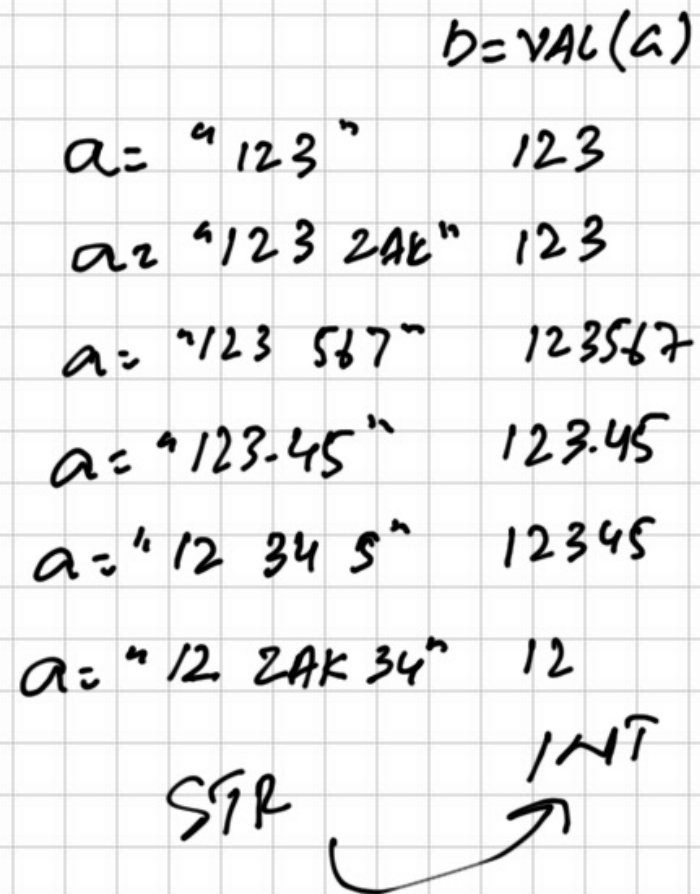 b=VAL(a)
a= "123" 123
a= "123 ZAK" 123
a= "123 567" 123567
a= "123.45" 123.45
a= "12 34 5" 12345
a= "12 ZAK 34" 12
INT
STR